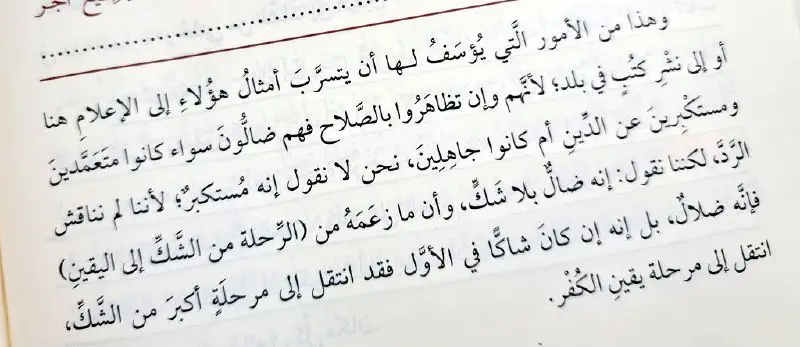 وهذا من الأمور الَّتي يُؤسَفُ لـها أن يتسرَّبَ أمثالُ هؤُلاءِ إلى الإعلامِ هنا
أو إلى نشْرِ كتُبٍ في بلد؛ لأنَّهم وإن تظاهَرُوا بالصَّلاح فهم ضالُّونَ سواء كانوا متَعَمَّدينَ
ومستَكْبِرينَ عن الدِّينِ أم كانوا جاهِلِينَ، نحن لا نقول إنه مُستكبرٌ؛ لأننا لم نناقش
الرَّدَّ، لكننا نقول: إنه ضالٌّ بلا شَكٍّ، وأن ما زعَمَهُ من (الرِّحلة من الشَّكِّ إلى اليقينِ)
فإنَّه ضلالٌ، بل إنه إن كانَ شاكًّا في الأوَّل فقد انتقل إلى مرحلَةٍ أكبرَ من الشَّكِّ،
انتقل إلى مرحلة يقينِ الكُفْر.